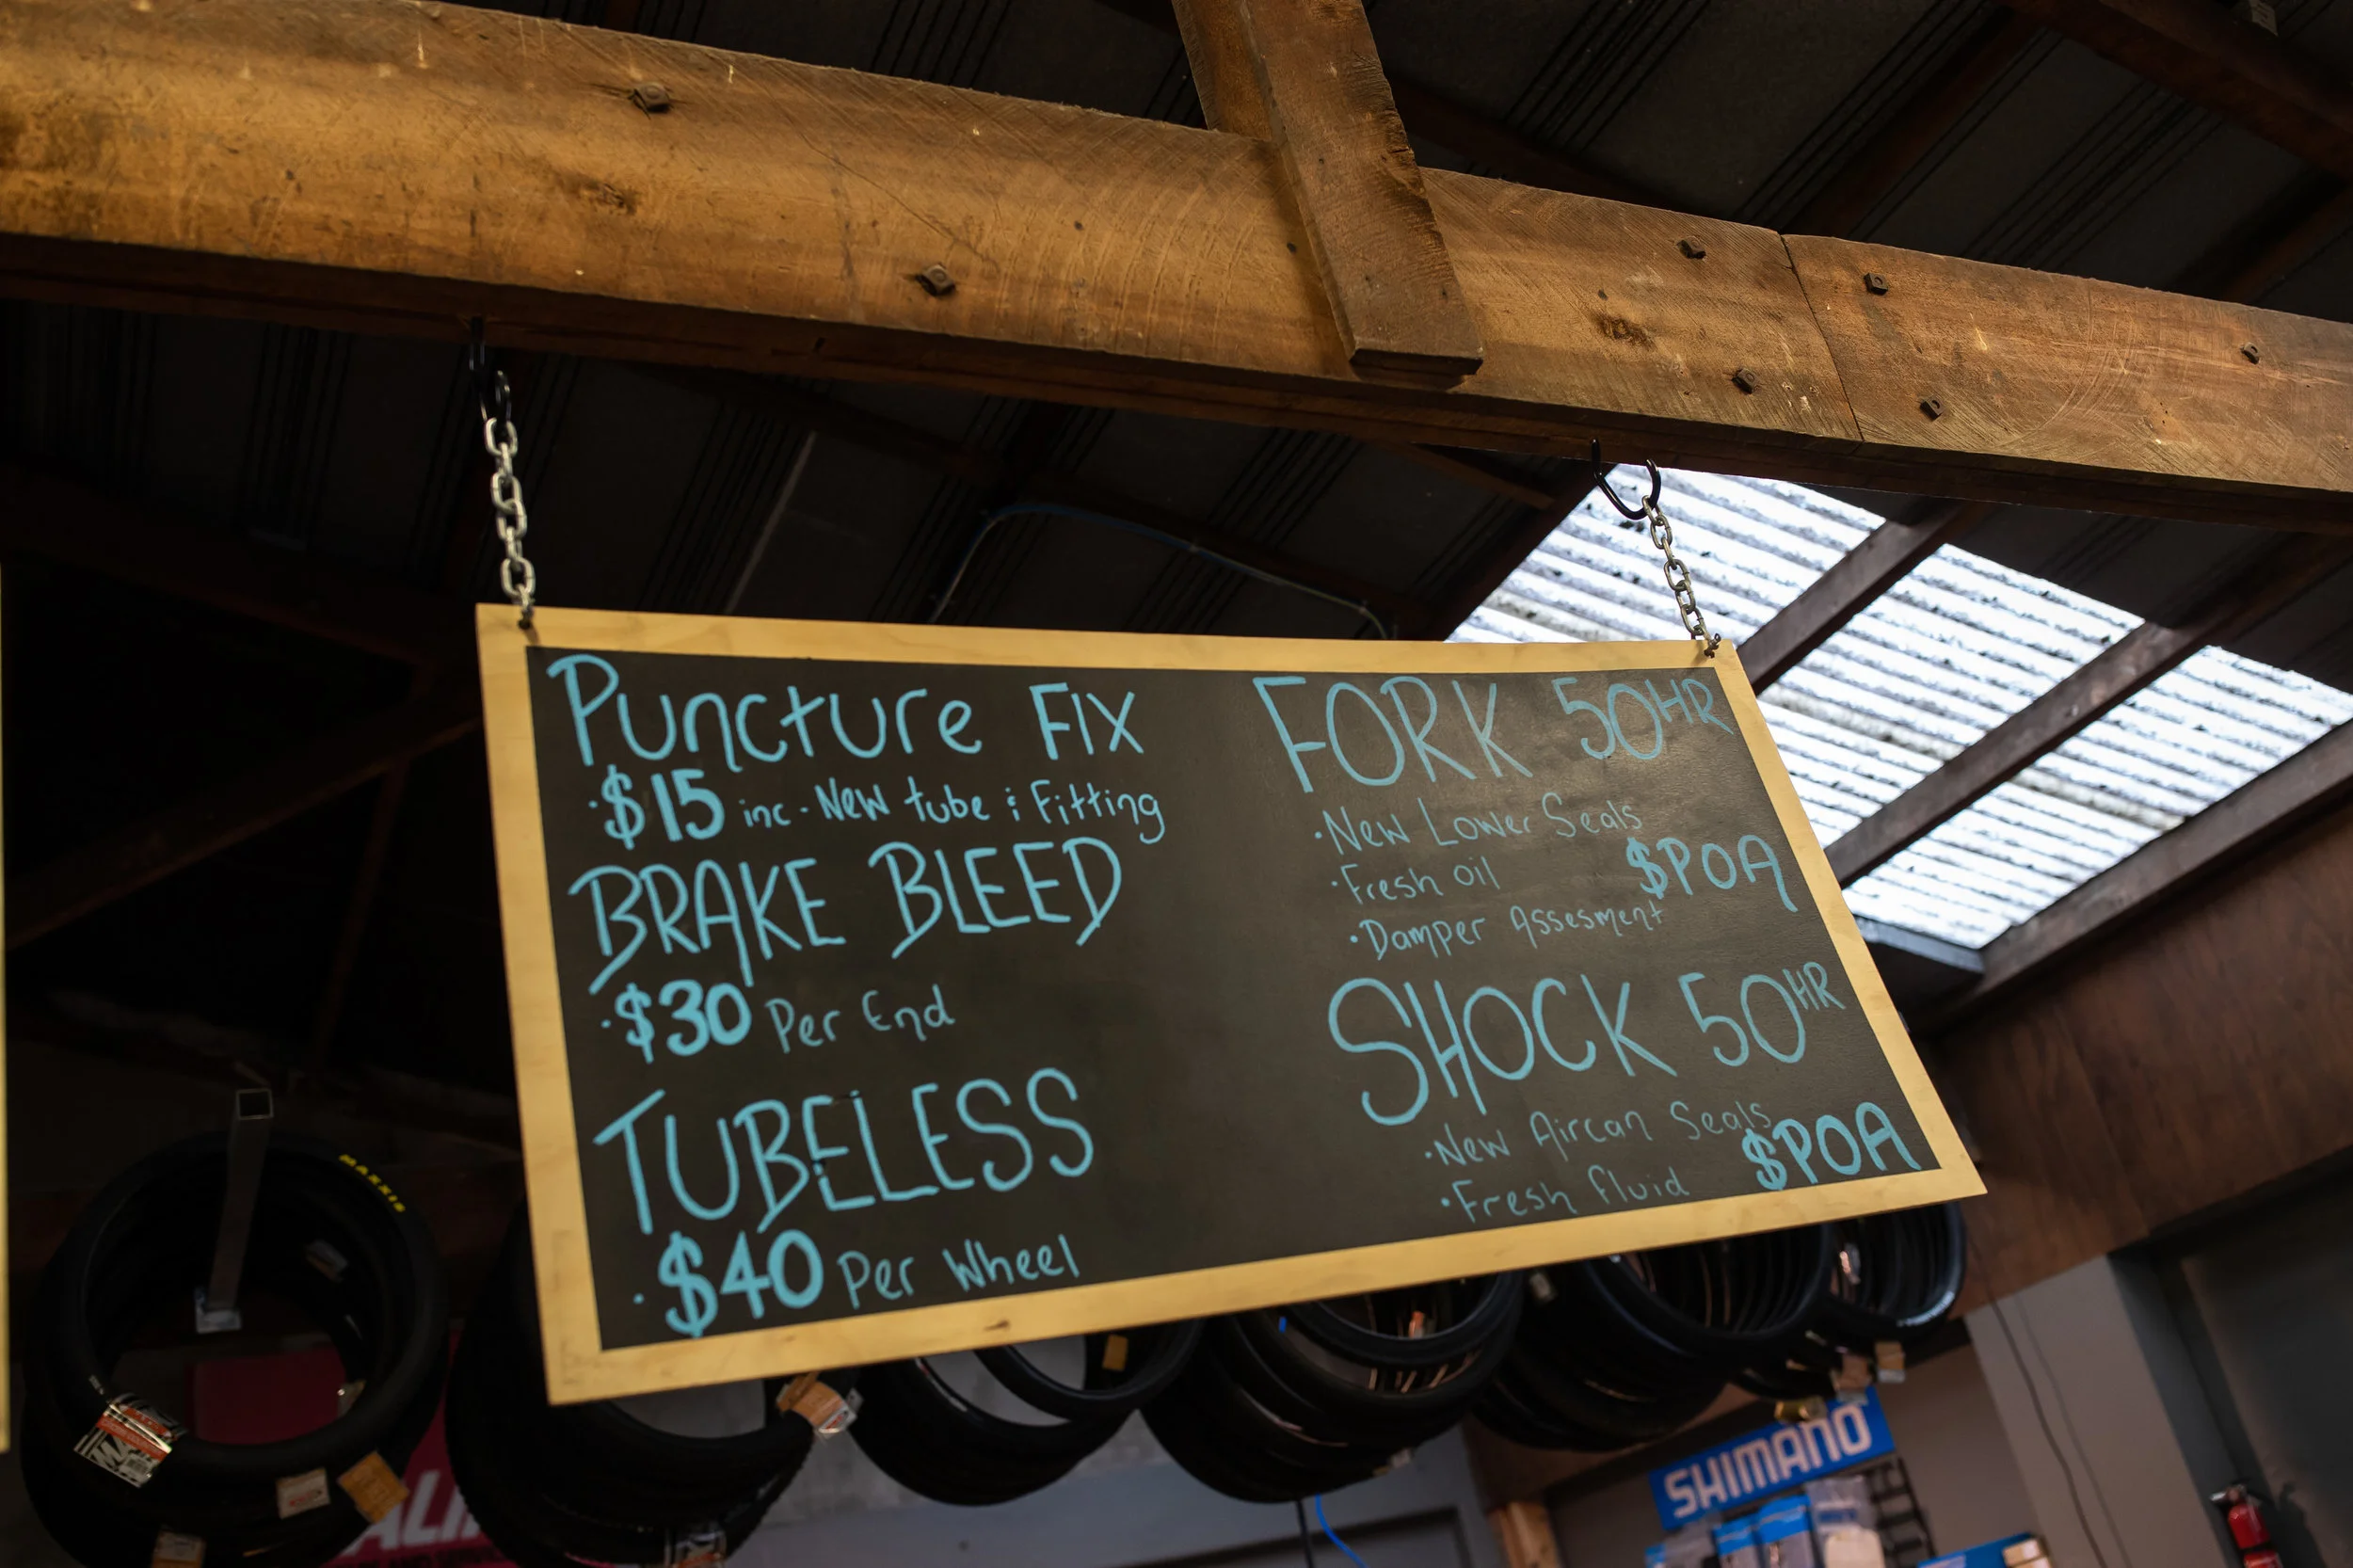 Puncture FIX
·$15 inc. New tube & Fitting
BRAKE BLEED
·$30 Per End
TUBELESS
·$40 Per Wheel
FORK 50HR
·New Lower Seals
·Fresh oil
$POA
·Damper Assesment
SHOCK 50HR
·New Aircan Seals
$POA
·Fresh fluid
MAXXIS
SHIMANO